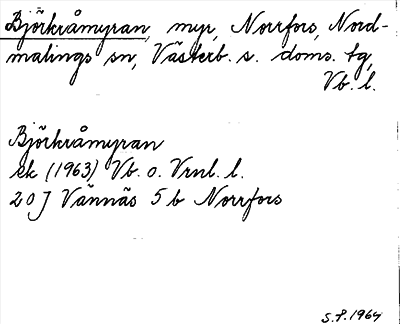 Björkråmyran, myr, Norrfors, Nord-
malings sn, Västerb. s. doms. tg,
Vb. l.
Björkråmyran
ek (1963) Vb. o. Vrnl. l.
20J Vännäs 5b Norrfors
S.P. 1964